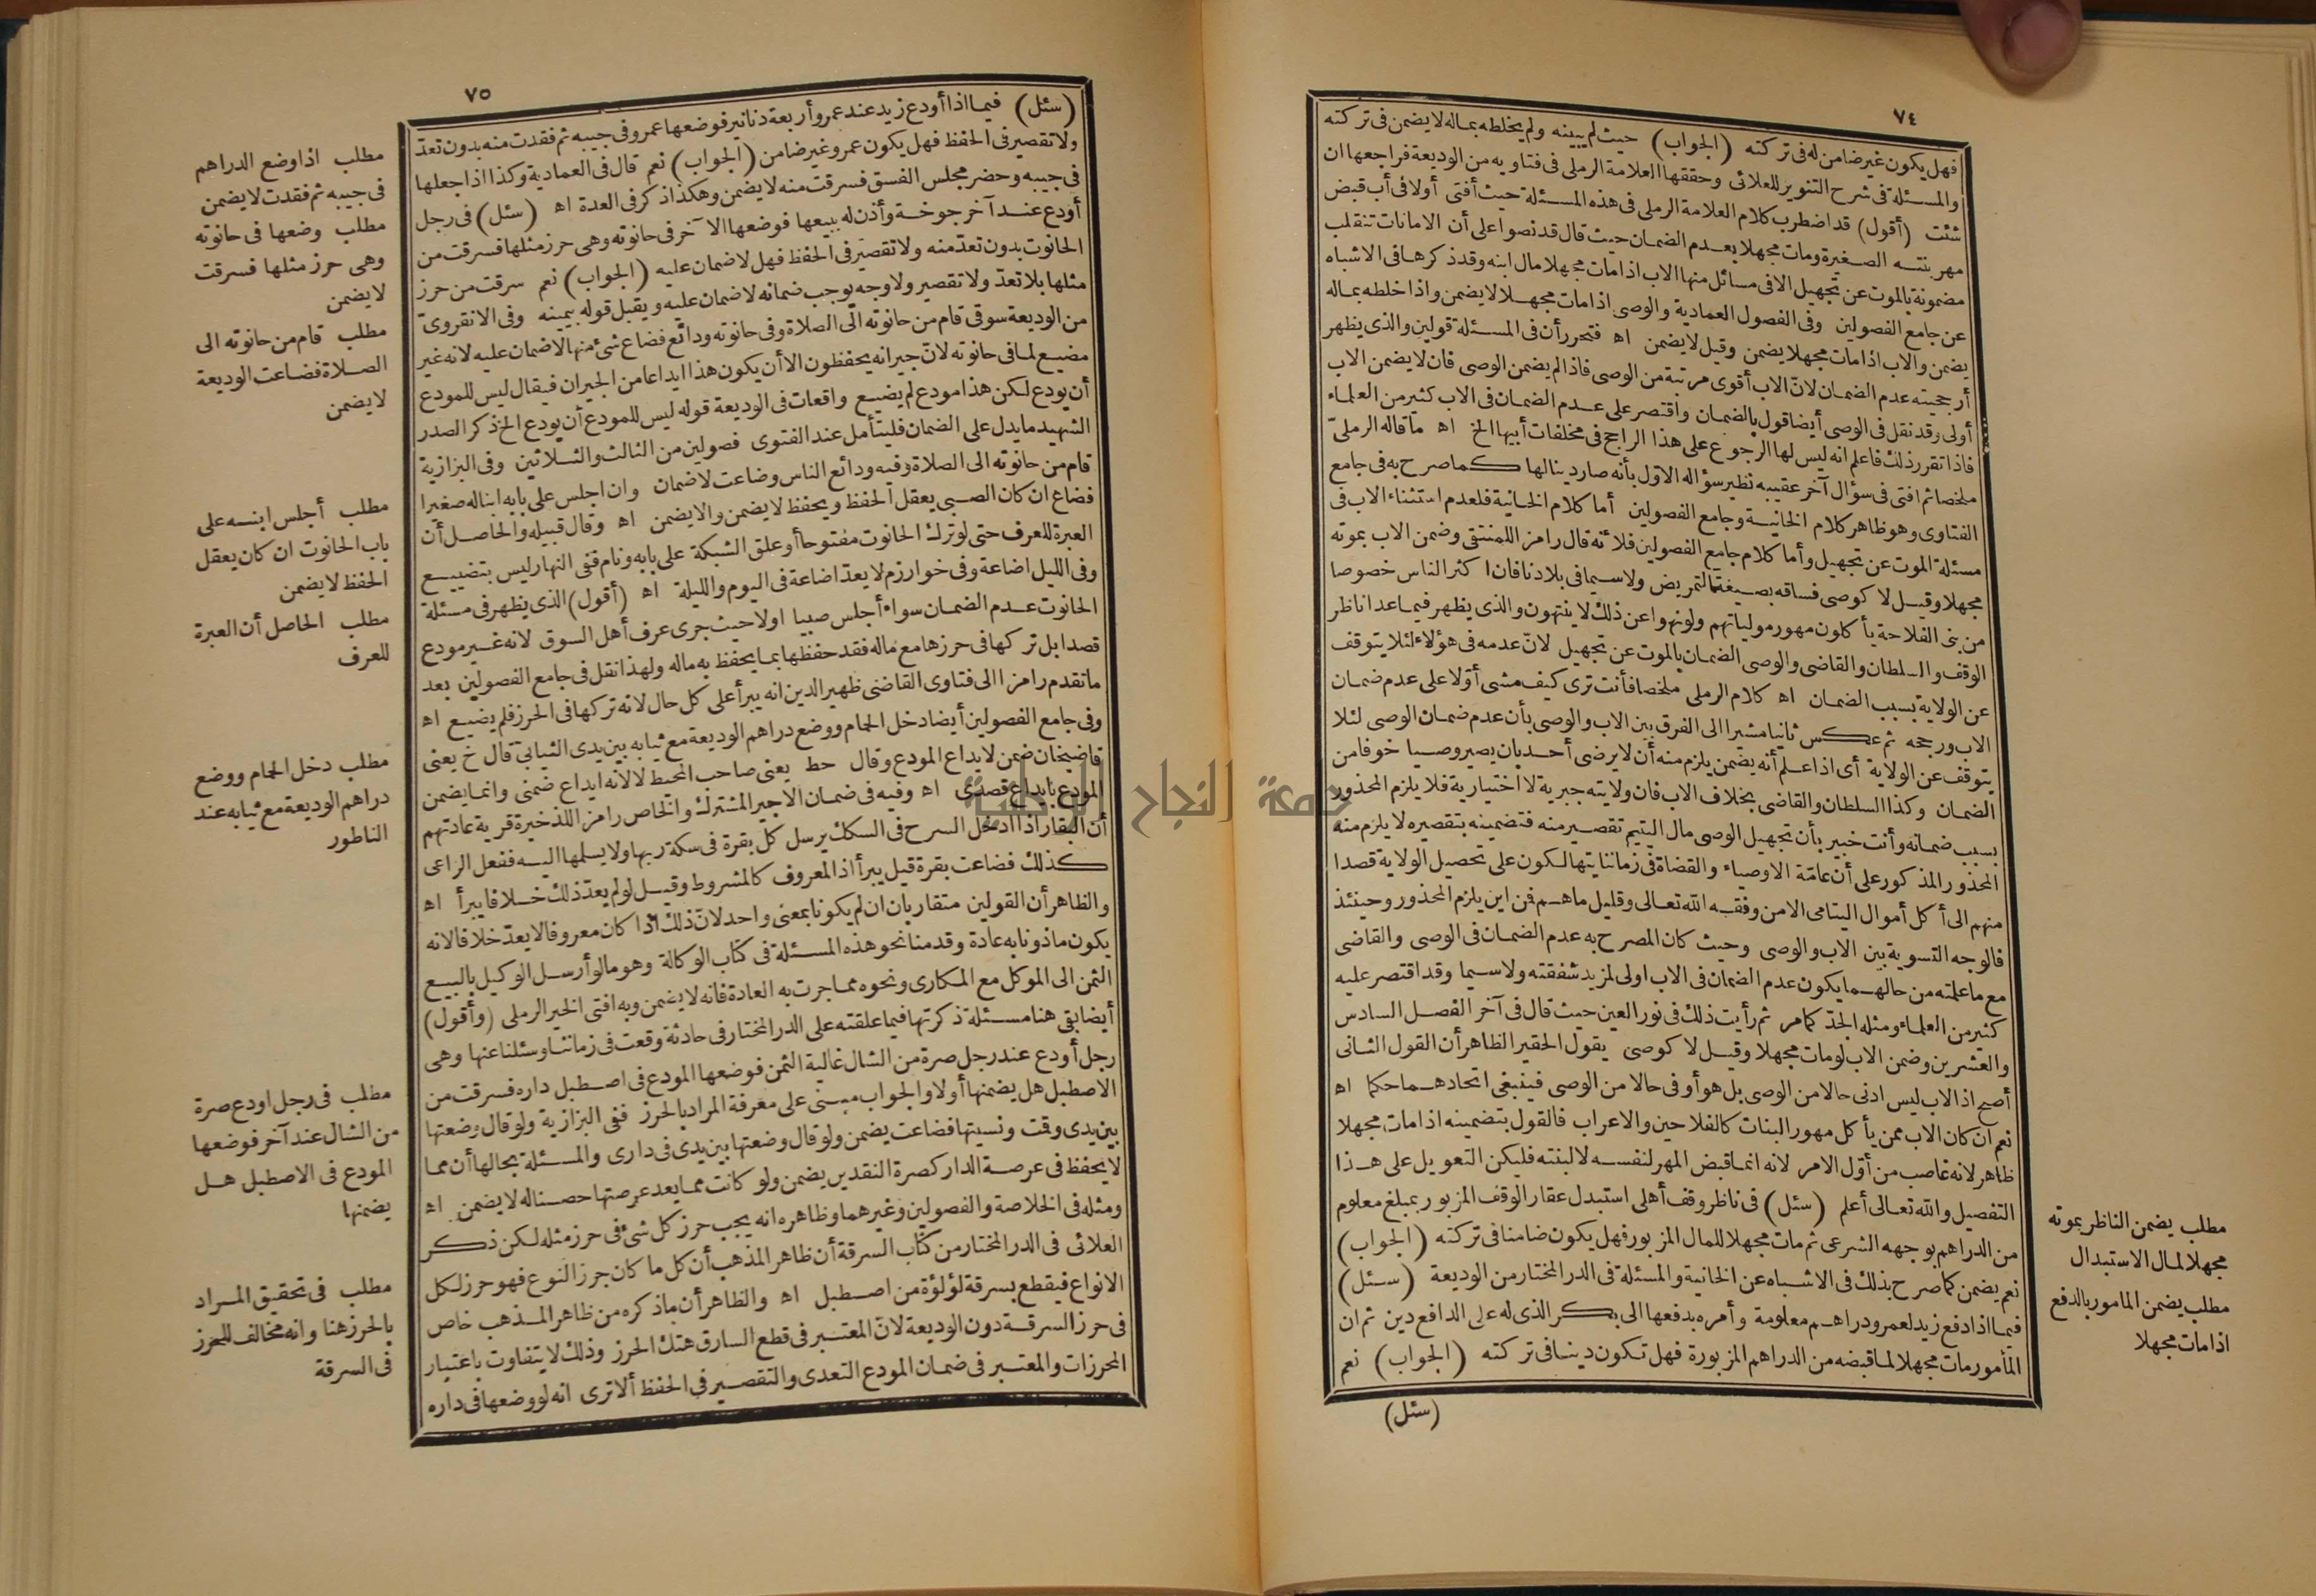 ٧٤
فهل يكون غير ضامن له فى تركته (الجواب) حيث لم يبينه ولم يخلطه بماله لا يضمن فى تركته
والمسئلة فى شرح التنوير للعلائى وحققها العلامة الرملى فى فتاويه من الوديعة فراجعها ان
شئت (أقول) قد اضطرب كلام العلامة الرملى فى هذه المسئلة حيث أفتى أولا فى أب قبض
مهر بنته الصغيرة ومات مجهلا بعدم الضمان حيث قال قد نصوا على أن الامانات تنقلب
مضمونة بالموت عن تجهيل الا فى مسائل منها الاب اذا مات مجهلا مال ابنه وقد ذكرها فى الاشباه
عن جامع الفصولين وفى الفصول العمادية والوصى اذا مات مجهلا لا يضمن واذا خلطه بماله
يضمن والاب اذا مات مجهلا يضمن وقيل لا يضمن اه فتحرر أن فى المسئلة قولين والذى يظهر
أرجحيته عدم الضمان لانّ الاب أقوى مرتبة من الوصى فاذا لم يضمن الوصى فان لا يضمن الاب
أولى وقد نقل فى الوصى أيضا قول بالضمان واقتصر على عدم الضمان فى الاب كثير من العلماء
فاذا تقرر ذلك فاعلم انه ليس لها الرجوع على هذا الراجح فى مخلفات أبيها الخ اه ما قاله الرملىّ
ملخصا ثم افتى فى سؤال آخر عقيبه نظير سؤاله الاول بأنه صار دينا لها كما صرح به فى جامع
الفتاوى وهو ظاهر كلام الخانية وجامع الفصولين أما كلام الخانية فلعدم استثناء الاب فى
مسئلة الموت عن تجهيل وأما كلام جامع الفصولين فلأنه قال رامزا للمنتقى وضمن الاب بموته
مجهلا وقيل لا كوصى فساقه بصيغة التمريض ولا سيما فى بلادنا فان اكثر الناس خصوصا
من بنى الفلاحة يأكلون مهور مولياتهم ولو نهوا عن ذلك لا ينتهون والذى يظهر فيما عدا ناظر
الوقف والسلطان والقاضى والوصى الضمان بالموت عن تجهيل لانّ عدمه فى هؤلاء لئلا يتوقف
عن الولاية بسبب الضمان اه كلام الرملى ملخصا فأنت ترى كيف مشى أوّلا على عدم ضمان
الاب ورجحه ثم عكس ثانيا مشيرا الى الفرق بين الاب والوصى بأن عدم ضمان الوصى لئلا
يتوقف عن الولاية أى اذا علم أنه يضمن يلزم منه أن لا يرضى أحد بان يصير وصيا خوفا من
الضمان وكذا السلطان والقاضى بخلاف الاب فان ولايته جبرية لا اختيارية فلا يلزم المحذور
بسبب ضمانه وأنت خبير بأن تجهيل الوصى مال اليتيم تقصير منه فتضمينه بتقصيره لا يلزم منه
المحذور المذكور على أن عامّة الاوصياء والقضاة فى زماننا يتهالكون على تحصيل الولاية قصدا
منهم الى أكل أموال اليتامى الا من وفقه الله تعالى وقليل ما هم فمن اين يلزم المحذور وحينئذ
فالوجه التسوية بين الاب والوصى وحيث كان المصرح به عدم الضمان فى الوصى والقاضى
مع ما علمته من حالهما يكون عدم الضمان فى الاب اولى لمزيد شفقته ولا سيما وقد اقتصر عليه
كثير من العلماء ومثله الجدّ كما مر ثم رأيت ذلك فى نور العين حيث قال فى آخر الفصل السادس
والعشرين وضمن الاب لو مات مجهلا وقيل لا كوصى يقول الحقير الظاهر أن القول الثانى
أصح اذ الاب ليس ادنى حالا من الوصى بل هو أوفى حالا من الوصى فينبغى اتحادهما حكما اه
نعم ان كان الاب ممن يأكل مهور البنات كالفلاحين والاعراب فالقول بتضمينه اذا مات مجهلا
ظاهر لانه غاصب من أوّل الامر لانه انما قبض المهر لنفسه لا لبنته فليكن التعويل على هذا
التفصيل والله تعالى أعلم (سئل) فى ناظر وقف أهلى استبدل عقار الوقف المزبور بمبلغ معلوم
من الدراهم بوجهه الشرعى ثم مات مجهلا للمال المزبور فهل يكون ضامنا فى تركته (الجواب)
نعم يضمن كما صرح بذلك فى الاشباه عن الخانية والمسئلة فى الدر المختار من الوديعة (سئل)
فيما اذا دفع زيد لعمرو دراهم معلومة وأمره بدفعها الى بكر الذى له على الدافع دين ثم ان
المأمور مات مجهلا لما قبضه من الدراهم المزبورة فهل تكون دينا فى تركته (الجواب) نعم
(سئل)
مطلب يضمن الناظر بموته
مجهلا لمال الاستبدال
مطلب يضمن المامور بالدفع
اذا مات مجهلا
٧٥
(سئل) فيما اذا أودع زيد عند عمرو أربعة دنانير فوضعها عمرو فى جيبه ثم فقدت منه بدون تعدّ
ولا تقصير فى الحفظ فهل يكون عمرو غير ضامن (الجواب) نعم قال فى العمادية وكذا اذا جعلها
فى جيبه وحضر مجلس الفسق فسرقت منه لا يضمن وهكذا ذكر فى العدة اه (سئل) فى رجل
أودع عند آخر جوخة وأذن له ببيعها فوضعها الآخر فى حانوته وهى حرز مثلها فسرقت من
الحانوت بدون تعدّ منه ولا تقصير فى الحفظ فهل لا ضمان عليه (الجواب) نعم سرقت من حرز
مثلها بلا تعدّ ولا تقصير ولا وجه يوجب ضمانه لا ضمان عليه ويقبل قوله بيمينه وفى الانقروىّ
من الوديعة سوقى قام من حانوته الى الصلاة وفى حانوته ودائع فضاع شئ منها لا ضمان عليه لانه غير
مضيع لما فى حانوته لانّ جيرانه يحفظون الا أن يكون هذا ايداعا من الجيران فيقال ليس للمودع
أن يودع لكن هذا مودع لم يضيع واقعات فى الوديعة قوله ليس للمودع أن يودع الخ ذكر الصدر
الشهيد ما يدل على الضمان فليتأمل عند الفتوى فصولين من الثالث والثلاثين وفى البزازية
قام من حانوته الى الصلاة وفيه ودائع الناس وضاعت لا ضمان وان اجلس على بابه ابنا له صغيرا
فضاع ان كان الصبى يعقل الحفظ ويحفظ لا يضمن والا يضمن اه وقال قبيله والحاصل أن
العبرة للعرف حتى لو ترك الحانوت مفتوحا أو علق الشبكة على بابه ونام ففى النهار ليس بتضييع
وفى الليل اضاعة وفى خوارزم لا يعدّ اضاعة فى اليوم والليلة اه (أقول) الذى يظهر فى مسئلة
الحانوت عدم الضمان سواء أجلس صبيا اولا حيث جرى عرف أهل السوق لانه غير مودع
قصدا بل تركها فى حرزها مع ماله فقد حفظها بما يحفظ به ماله ولهذا نقل فى جامع الفصولين بعد
ما تقدم رامزا الى فتاوى القاضى ظهير الدين انه يبرأ على كل حال لانه تركها فى الحرز فلم يضيع اه
وفى جامع الفصولين أيضا دخل الحمام ووضع دراهم الوديعة مع ثيابه بين يدى الثيابىّ قال خ يعنى
قاضيخان ضمن لايداع المودع وقال حط يعنى صاحب المحيط لا لانه ايداع ضمنى وانما يضمن
المودع بايداع قصدى اه وفيه فى ضمان الاجير المشترك والخاص رامزا للذخيرة قرية عادتهم
أن البقار اذا أدخل السرح فى السكك يرسل كل بقرة فى سكة ربها ولا يسلمها اليه ففعل الراعى
كذلك فضاعت بقرة قيل يبرأ اذ المعروف كالمشروط وقيل لو لم يعدّ ذلك خلافا يبرأ اه
والظاهر أن القولين متقاربان ان لم يكونا بمعنى واحد لانّ ذلك اذا كان معروفا لا يعدّ خلافا لانه
يكون ماذونا به عادة وقد منا نحو هذه المسئلة فى كتاب الوكالة وهو ما لو أرسل الوكيل بالبيع
الثمن الى الموكل مع المكارى ونحوه مما جرت به العادة فانه لا يضمن وبه افتى الخير الرملى (وأقول)
أيضا بقى هنا مسئلة ذكرتها فيما علقته على الدر المختار فى حادثة وقعت فى زماننا وسئلنا عنها وهى
رجل أودع عند رجل صرة من الشال غالية الثمن فوضعها المودع فى اصطبل داره فسرقت من
الاصطبل هل يضمنها أولا والجواب مبنى على معرفة المراد بالحرز ففى البزازية ولو قال وضعتها
بين يدى وقمت ونسيتها فضاعت يضمن ولو قال وضعتها بين يدى فى دارى والمسئلة بحالها أن مما
لا يحفظ فى عرصة الدار كصرة النقدير يضمن ولو كانت مما يعد عرصتها حصنا له لا يضمن اه
ومثله فى الخلاصة والفصولين وغيرهما وظاهره انه يجب حرز كل شئ فى حرز مثله لكن ذكر
العلائى فى الدر المختار من كتاب السرقة أن ظاهر المذهب أن كل ما كان حرز النوع فهو حرز لكل
الانواع فيقطع بسرقة لؤلؤة من اصطبل اه والظاهر أن ما ذكره من ظاهر المذهب خاص
فى حرز السرقة دون الوديعة لانّ المعتبر فى قطع السارق هتك الحرز وذلك لا يتفاوت باعتبار
المحرزات والمعتبر فى ضمان المودع التعدى والتقصير فى الحفظ ألا ترى انه لو وضعها فى داره
مطلب اذا وضع الدراهم
فى جيبه ثم فقدت لا يضمن
مطلب وضعها فى حانوته
وهى حرز مثلها فسرقت
لا يضمن
مطلب قام من حانوته الى
الصلاة فضاعت الوديعة
لا يضمن
مطلب أجلس ابنه على
باب الحانوت ان كان يعقل
الحفظ لا يضمن
مطلب الحاصل أن العبرة
للعرف
مطلب دخل الحمام ووضع
دراهم الوديعة مع ثيابه عند
الناطور
مطلب فى رجل اودع صرة
من الشال عند آخر فوضعها
المودع فى الاصطبل هل
يضمنها
مطلب فى تحقيق المراد
بالحرز هنا وانه مخالف للحرز
فى السرقة
جامعة النجاح الوطنية